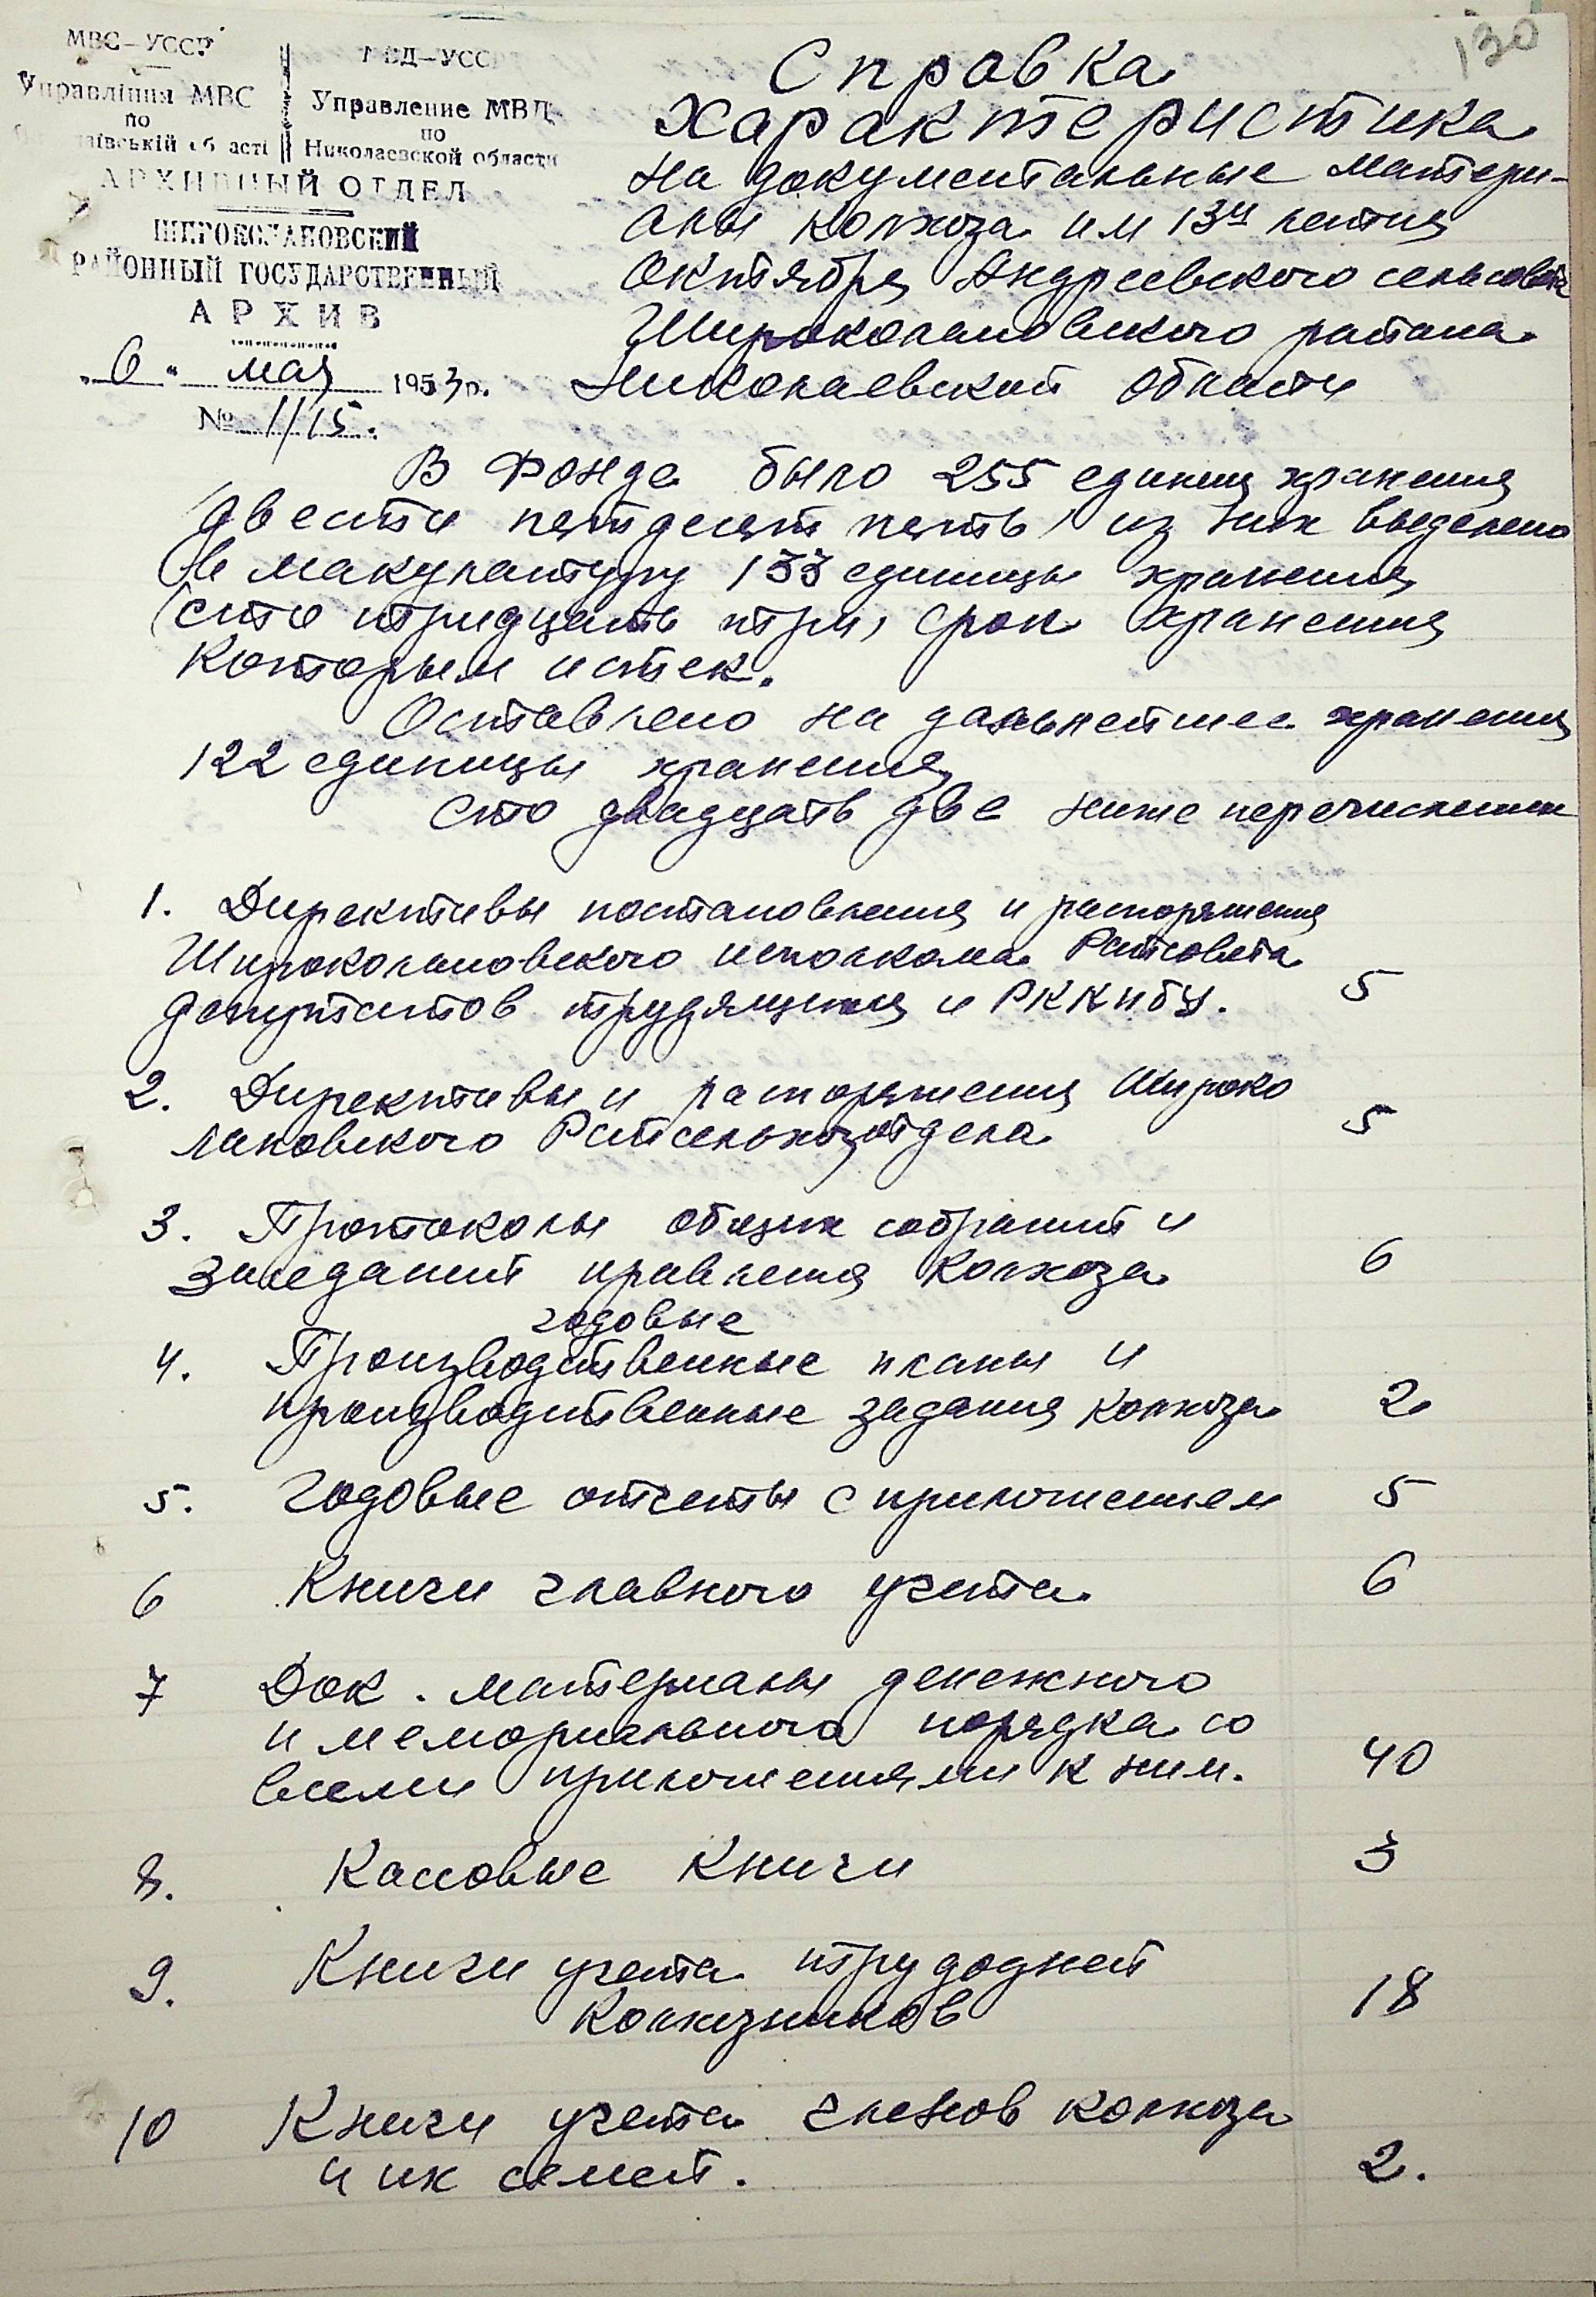 130
МВС–УССР
МВД–УССР
Управління МВС
по
Миколаївській області
Управление МВД
по
Николаевской области
АРХИВНЫЙ ОТДЕЛ
ШИРОКОЛАНОВСКИЙ
РАЙОННЫЙ ГОСУДАРСТВЕННЫЙ
АРХИВ
„6" мая 1953 р.
№ 1/15.
Справка
Характеристика
на документальные матери-
алы колхоза им 13й летия
Октября Андреевского сельсовета
Широколановского района
Николаевской области
В Фонде было 255 единиц хранения
(двести пятдесят пять) из них выделено
в макулатуру 133 единицы хранения
(сто тридцать три, срок хранения
которым истек.
Оставлено на дальнейшее хранения
122 единицы хранения
сто двадцать две ниже перечисленных
1. Директивы постановления и распоряжения
Широколановского исполкома Райсовета
депутатов трудящихся и РККПбУ. 5
2. Директивы и распоряжения Широко
лановского Райсельхозотдела 5
3. Протоколы общих собраний и
Заседаний правления колхоза 6
годовые
4. Производственные планы и
производственные задания колхоза 2
5. Годовые отчеты с приложением 5
6 Книги главного учета 6
7 Док. материалы денежного
и мемориального порядка со
всеми приложениями к ним. 40
8. Кассовые книги 3
9. Книги учета трудодней
Колхозников 18
10 Книги учета членов колхоза
и их семей. 2.